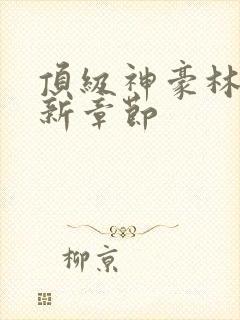 頂級神豪林
新章節
柳京